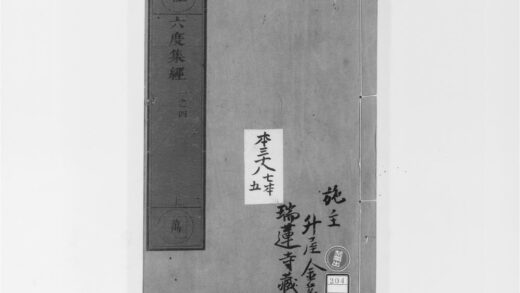 六度集經 一之四
萬
本三十八
七本
五
施主
升屋金
瑞蓮寺藏
204